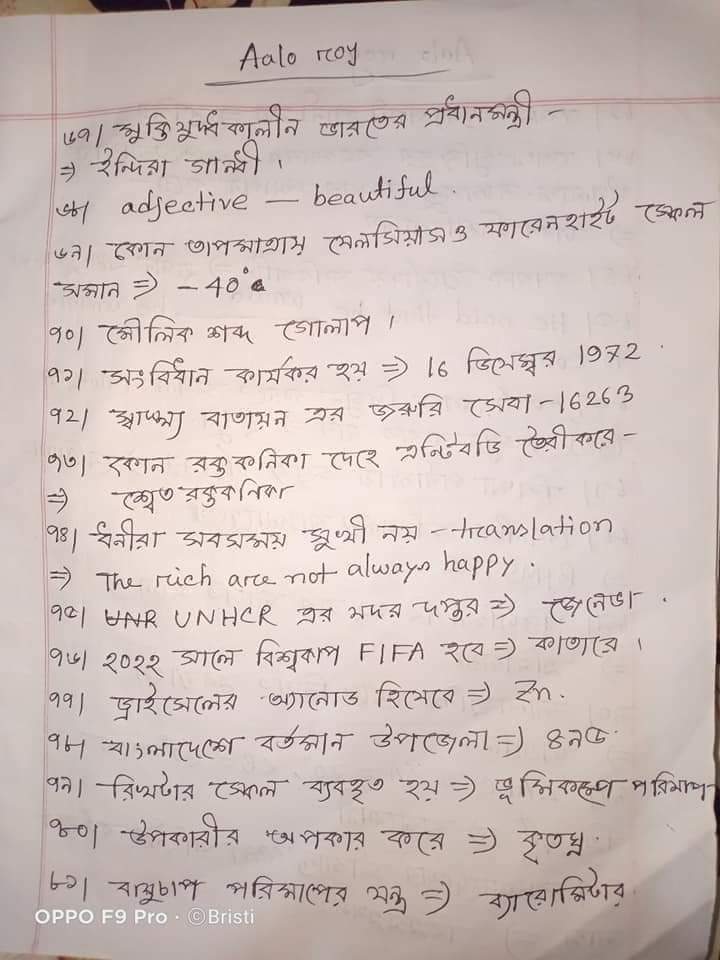 Aalo roy
৬৭। মুক্তিযুদ্ধকালীন ভারতের প্রধানমন্ত্রী -
⇒ ইন্দিরা গান্ধী।
৬৮। adjective — beautiful.
৬৯। কোন তাপমাত্রায় সেলসিয়াস ও ফারেনহাইট স্কেল
সমান ⇒ - 40°c
৭০। মৌলিক শব্দ গোলাপ।
৭১। সংবিধান কার্যকর হয় ⇒ 16 ডিসেম্বর 1972.
৭২। স্বাস্থ্য বাতায়ন এর জরুরি সেবা - 16263
৭৩। কোন রক্তকনিকা দেহে এন্টিবডি তৈরী করে -
⇒ শ্বেত রক্তকনিকা
৭৪। ধনীরা সবসময় সুখী নয় - translation
⇒ The rich are not always happy.
৭৫। UNHCR এর সদর দপ্তর ⇒ জেনেভা.
৭৬। ২০২২ সালে বিশ্বকাপ FIFA হবে ⇒ কাতারে।
৭৭। ড্রাইসেলের অ্যানোড হিসেবে ⇒ Zn.
৭৮। বাংলাদেশে বর্তমান উপজেলা ⇒ ৪৯৫.
৭৯। রিখটার স্কেল ব্যবহৃত হয় ⇒ ভূমিকম্পে পরিমাপ
৮০। উপকারীর অপকার করে ⇒ কৃতঘ্ন.
৮১। বায়ুচাপ পরিমাপের যন্ত্র ⇒ ব্যারোমিটার.
OPPO F9 Pro · ©Bristi